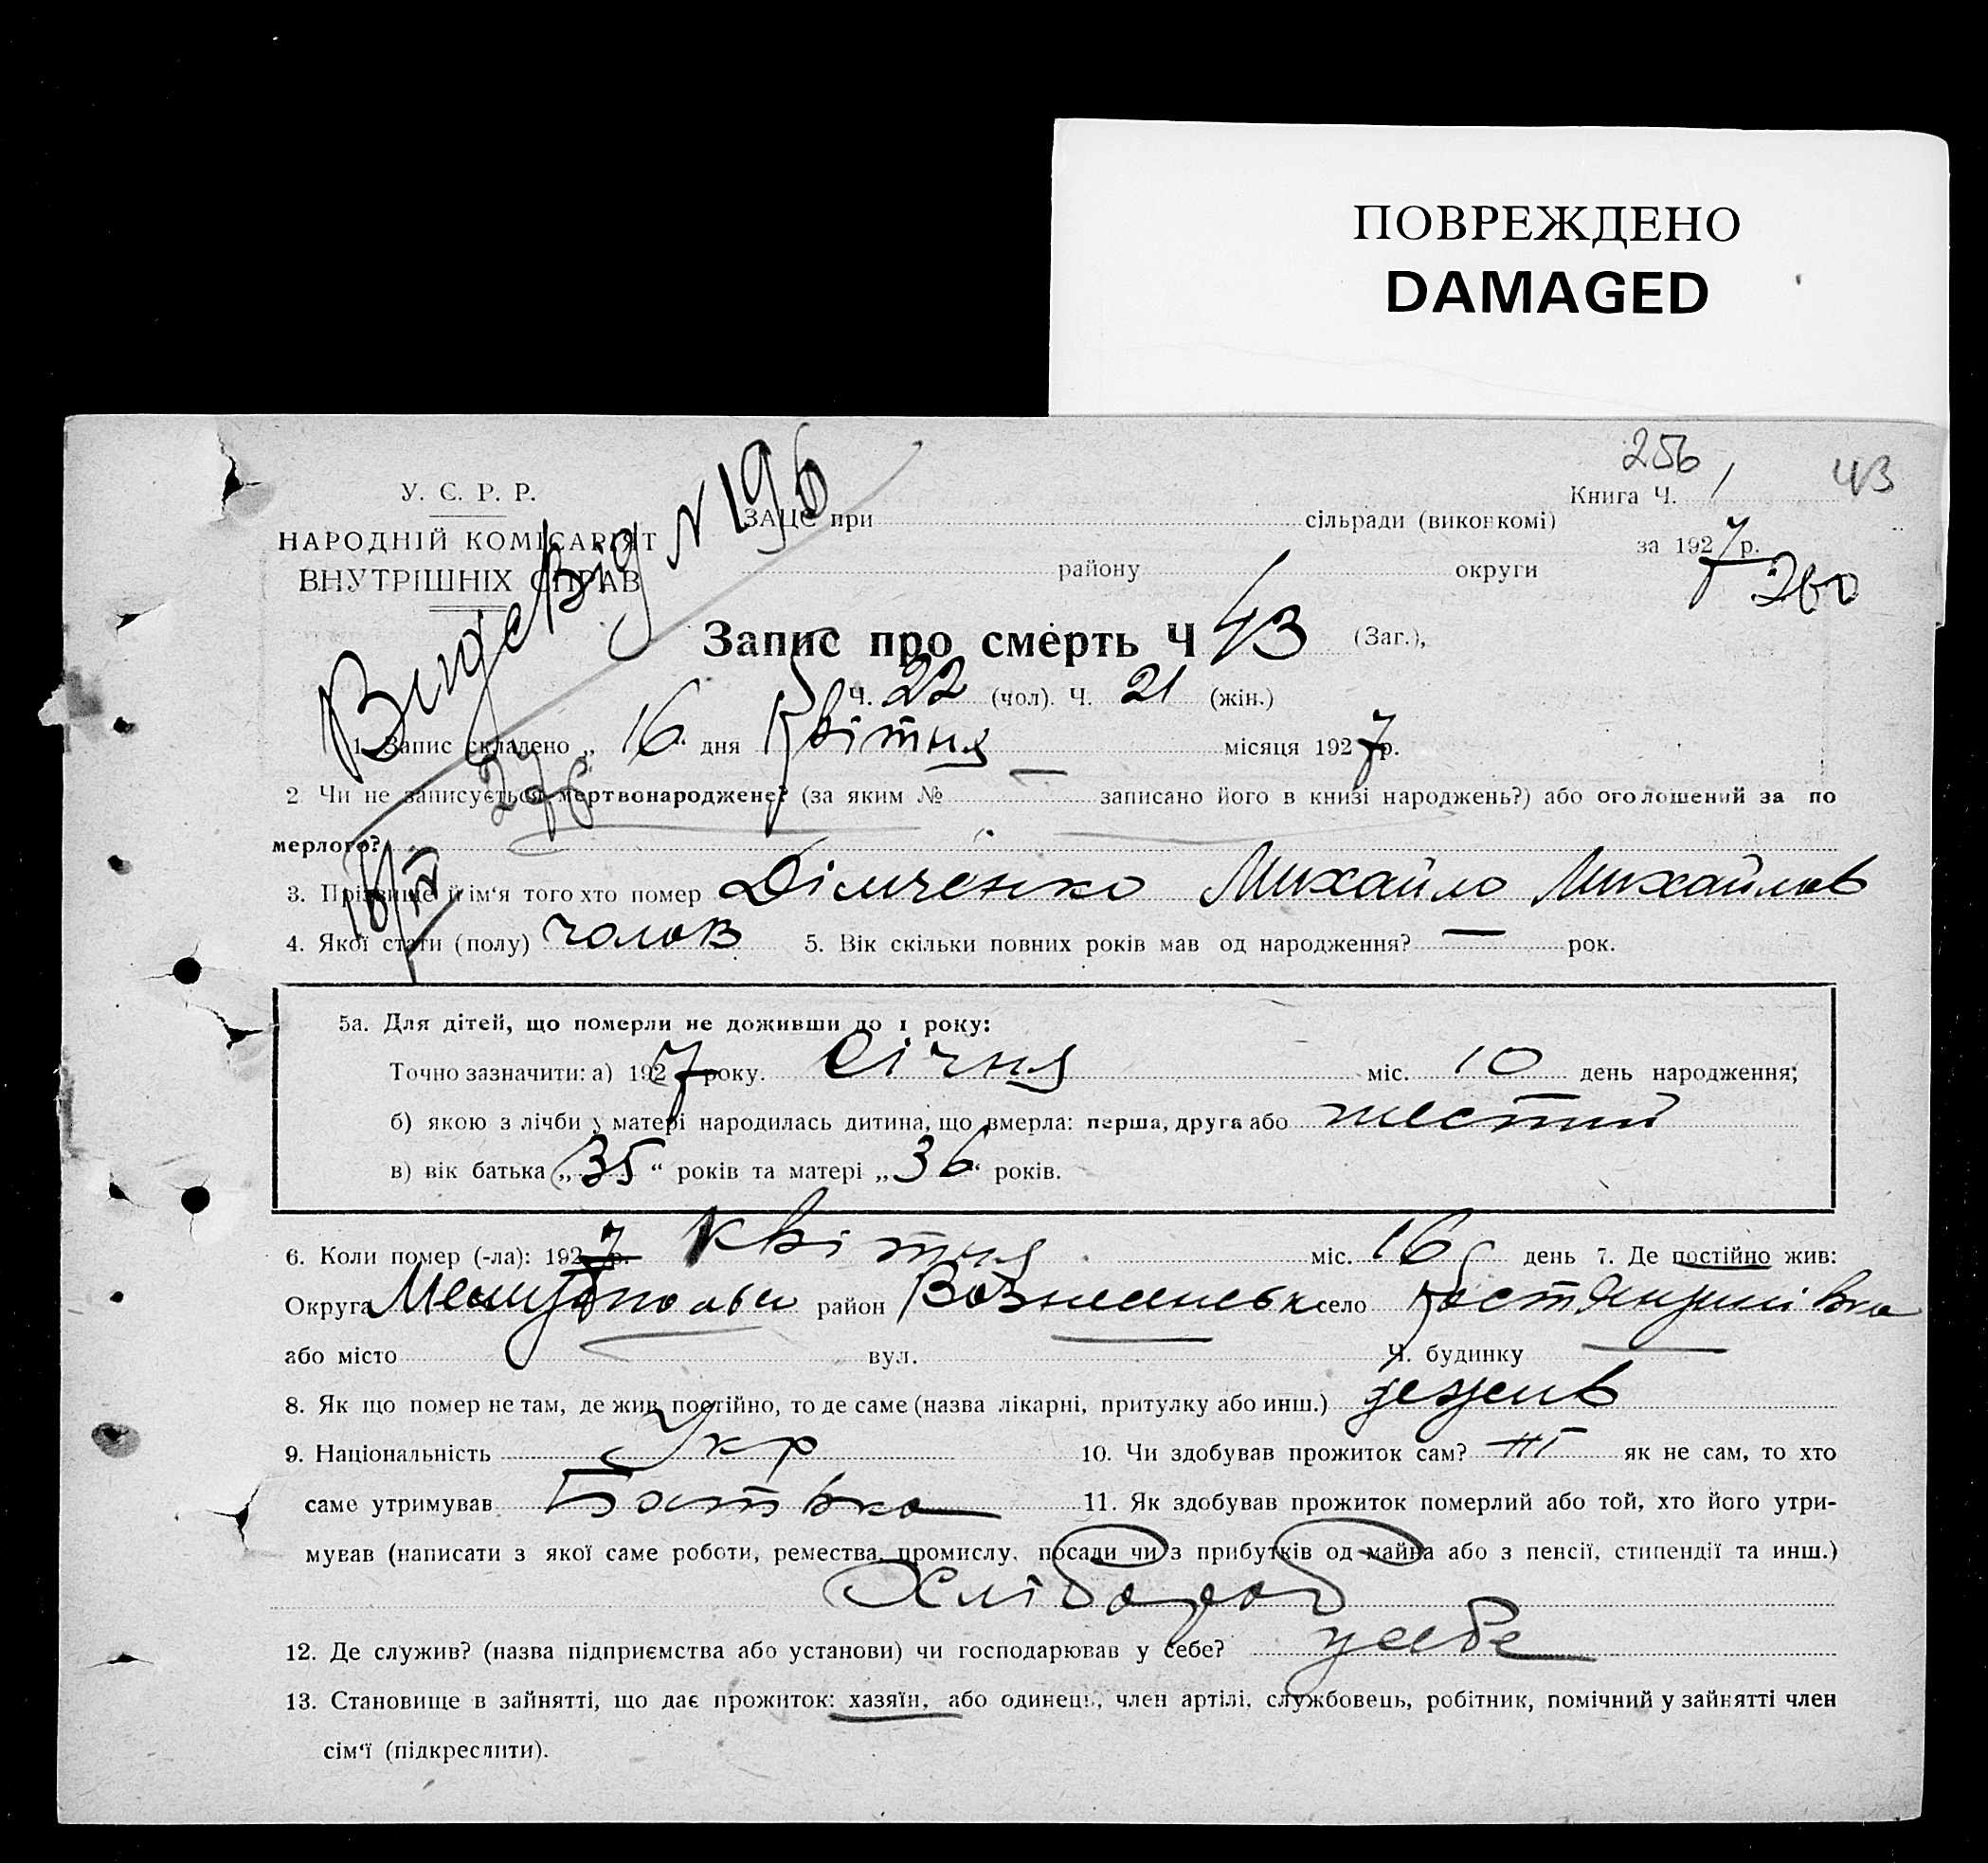 ПОВРЕЖДЕНО
DAMAGED
256
43
Книга Ч. 1
У. С. Р. Р.
НАРОДНІЙ КОМІСАРІЯТ
ВНУТРІШНІХ СПРАВ
N 196
ЗАЦС при сільради (виконкомі)
за 1927 р.
району округи
260
Запис про смерть Ч 43 (Заг.),
Ч. 22 (чол). Ч. 21 (жін.)
1. Запис складено „ 16 “ дня Квітня місяця 1927 р.
2 Чи не записується мертвонароджене? (за яким № записано його в книзі народжень?) або оголошений за по
мерлого?
3. Прізвище й ім‘я того хто помер Дімченко Михайло Михайлов
4. Якої стати (полу) чолов 5. Вік скільки повних років мав од народження? — рок.
5а. Для дітей, що померли не доживши до 1 року:
Точно зазначити: а) 1927 року. Січня міс. 10 день народження;
б) якою з лічби у матері народилась дитина, що вмерла: перша, друга або шестий
в) вік батька „ 35 “ років та матері „ 36 “ років.
6. Коли помер (-ла): 1927 р. Квітня міс. 16 день 7. Де постійно жив:
Округа район Вознесенськ село
або місто вул. Ч. будинку
8. Як що помер не там, де жив постійно, то де саме (назва лікарні, притулку або инш.) де жив
9. Національність Укр 10. Чи здобував прожиток сам? ні як не сам, то хто
саме утримував Батько 11. Як здобував прожиток померлий або той, хто його утри-
мував (написати з якої саме роботи, ремества, промислу, посади чи з прибутків од майна або з пенсії, стипендії та инш.)
Хлібороб
12. Де служив? (назва підприємства або установи) чи господарював у себе? у себе
13. Становище в зайнятті, що дає прожиток: хазяїн, або одинець, член артілі, службовець, робітник, помічний у зайнятті член
сім‘ї (підкреслити).